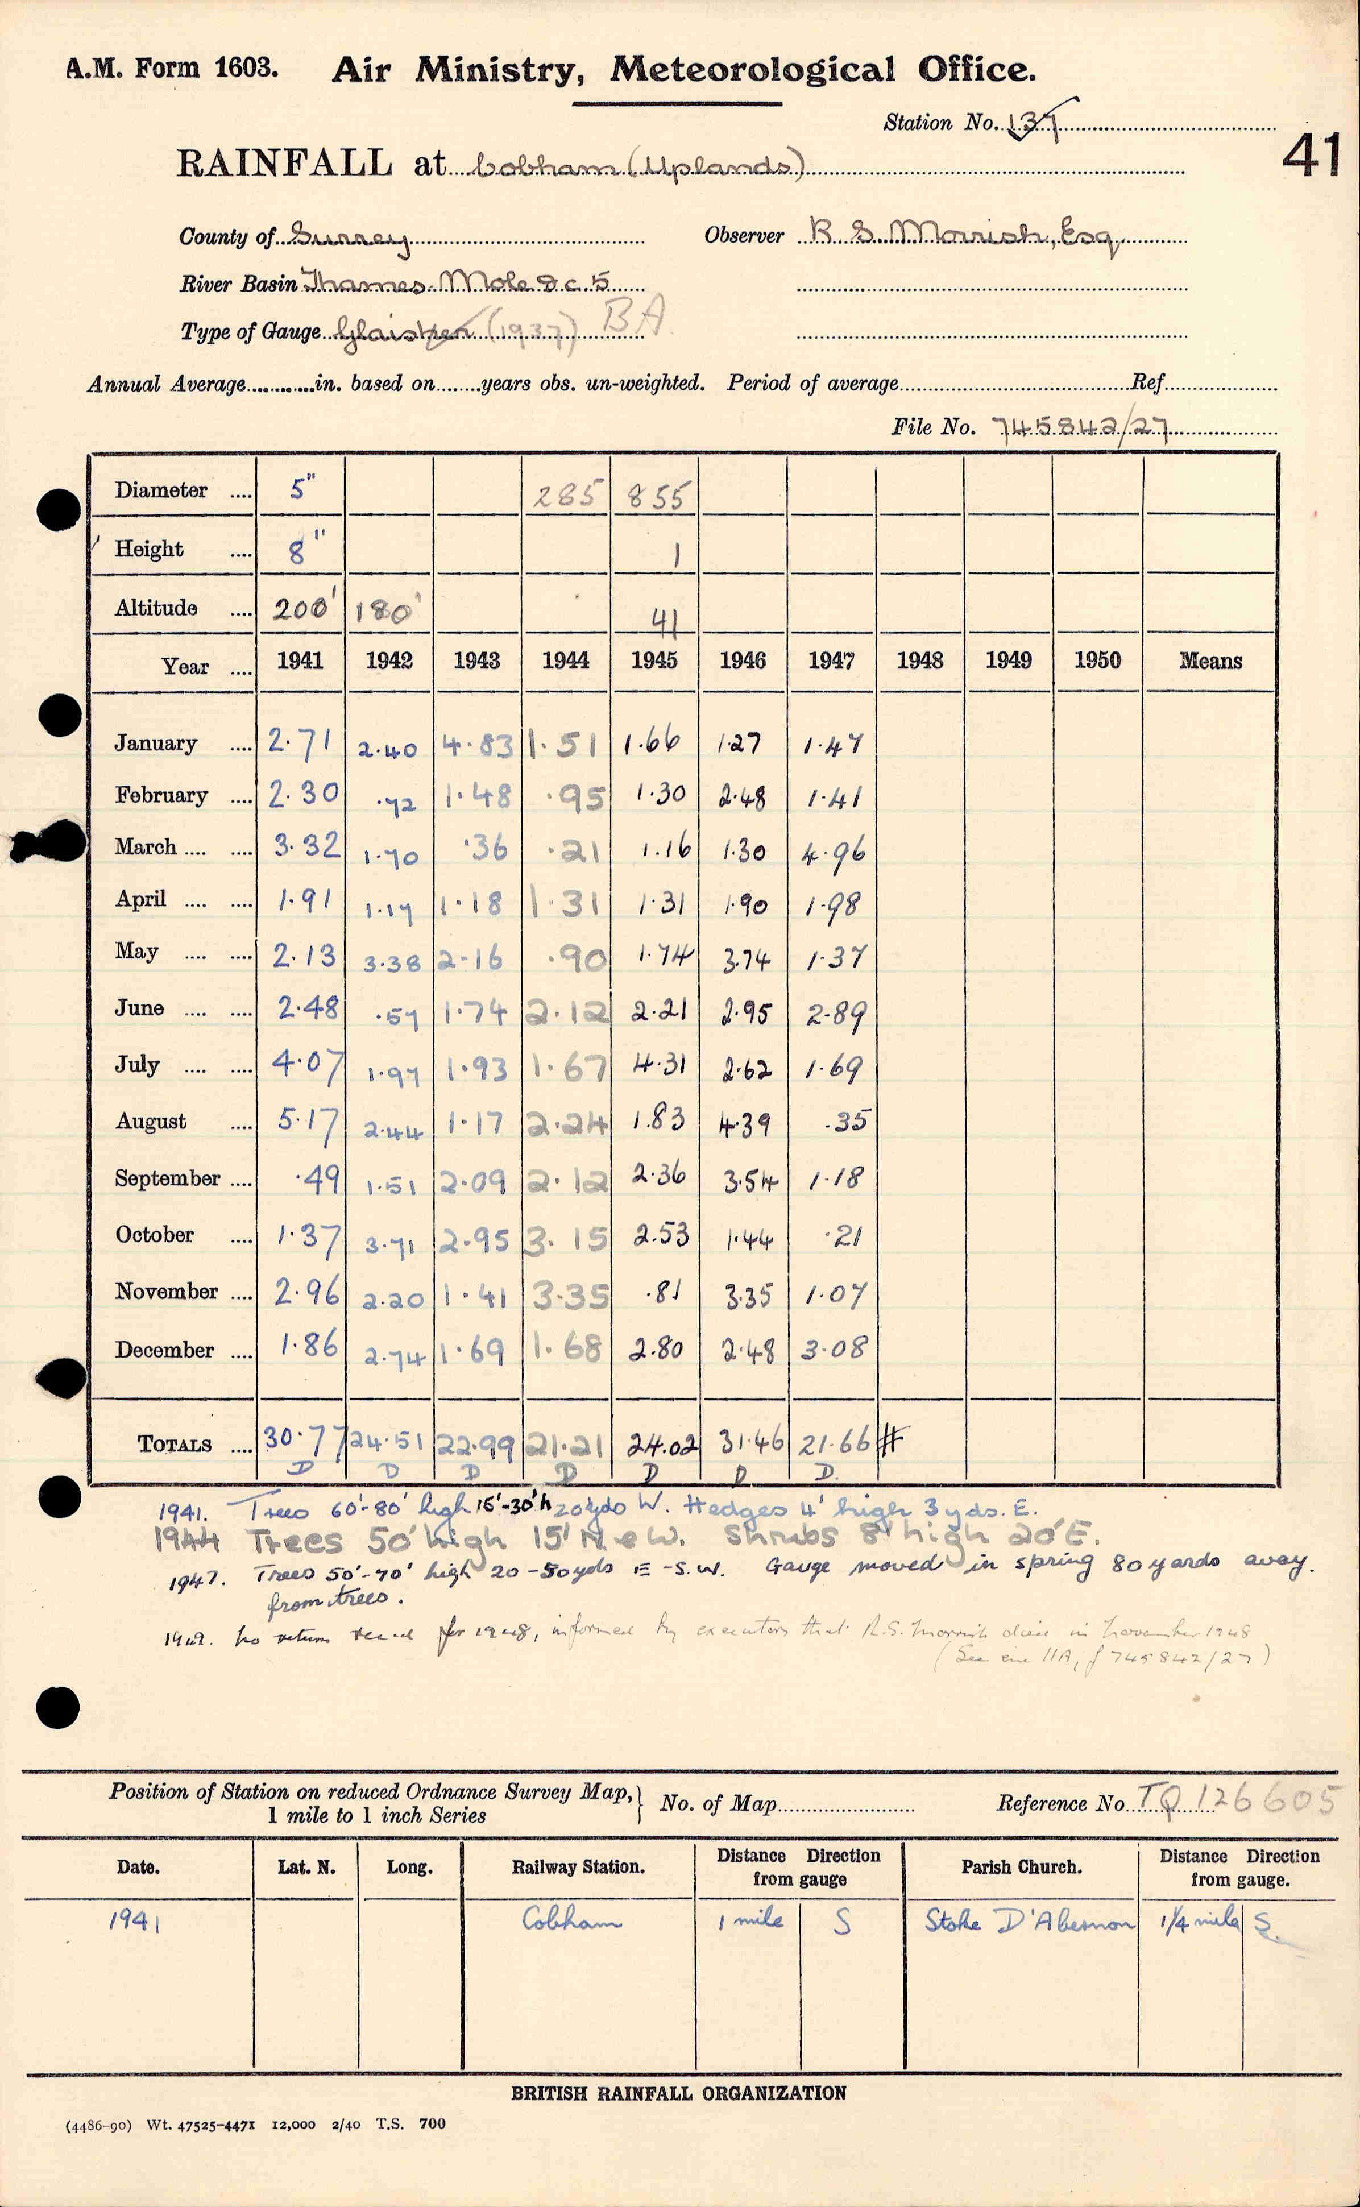 A.M. Form 1603. Air Ministry, Meteorological Office.
Station No. 137
41
RAINFALL at Cobham (Uplands)
County of Surrey Observer R S Morrish, Esq
River Basin Thames. Mole &c 5
Type of Gauge Glaisher (1937) BA
Annual Average............in. based on........years obs. un-weighted. Period of average Ref.
File No. 745842/27
Diameter .... 5" 285 855
Height .... 8" 1
Altitude .... 200' 180' 41
Year .... 1941 1942 1943 1944 1945 1946 1947 1948 1949 1950 Means
January .... 2.71 2.40 4.83 1.51 1.66 1.27 1.47
February .... 2.30 .72 1.48 .95 1.30 2.48 1.41
March .... .... 3.32 1.70 .36 .21 1.16 1.30 4.96
April .... .... 1.91 1.17 1.18 1.31 1.31 1.90 1.98
May .... .... 2.13 3.38 2.16 .90 1.74 3.74 1.37
June .... .... 2.48 .57 1.74 2.12 2.21 2.95 2.89
July .... .... 4.07 1.97 1.93 1.67 4.31 2.62 1.69
August .... 5.17 2.44 1.17 2.24 1.83 4.39 .35
September .... .49 1.51 2.09 2.12 2.36 3.54 1.18
October .... 1.37 3.71 2.95 3.15 2.53 1.44 .21
November .... 2.96 2.20 1.41 3.35 .81 3.35 1.07
December .... 1.86 2.74 1.69 1.68 2.80 2.48 3.08
TOTALS .... 30.77 24.51 22.99 21.21 24.02 31.46 21.66 #
D D D D D D D
1941. Trees 60'-80' high 15'-30'h 20 yds W. Hedges 4' high 3 yds. E.
1944 Trees 50' high 15' N & W. Shrubs 8' high 20' E.
1947. Trees 50'-70' high 20-50 yds E-S.W. Gauge moved in spring 80 yards away
from trees.
1949. No return for 1948, informed by executors that R.S. Morrish died in November 1948
(See 11A, f 745842/27)
Position of Station on reduced Ordnance Survey Map,} No. of Map Reference No. TQ 126605
1 mile to 1 inch Series
Date. Lat. N. Long. Railway Station. Distance Direction from gauge Parish Church. Distance Direction from gauge.
1941 Cobham 1 mile S Stoke D'Abernon 1¼ mile S.
BRITISH RAINFALL ORGANIZATION
(4486-90) Wt. 47525-4471 12,000 2/40 T.S. 700